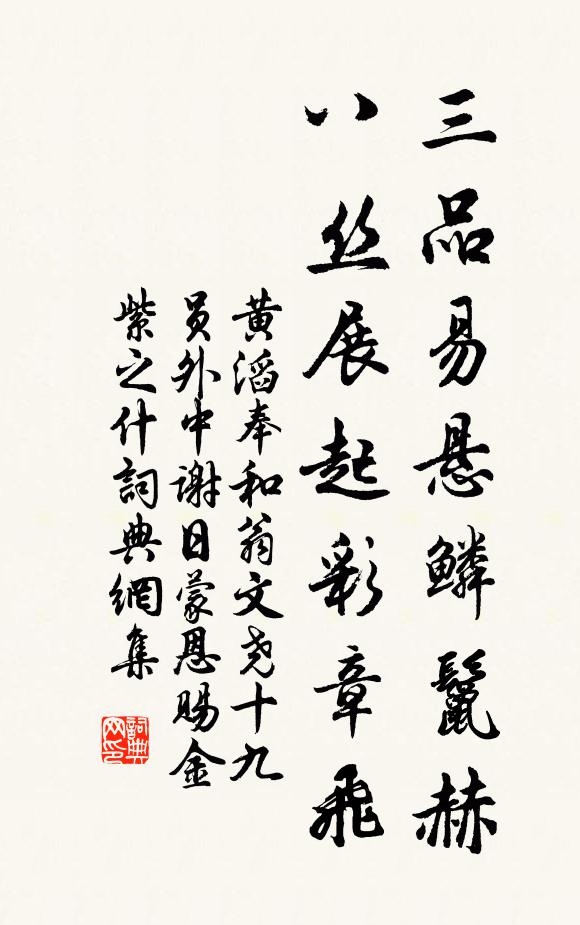 三品易悬鳞鬣赫
八丝展起彩章飛
黄滔奉和翁文尧十九
员外中谢日蒙恩赐金
紫之什詞典網集
詞典
网印